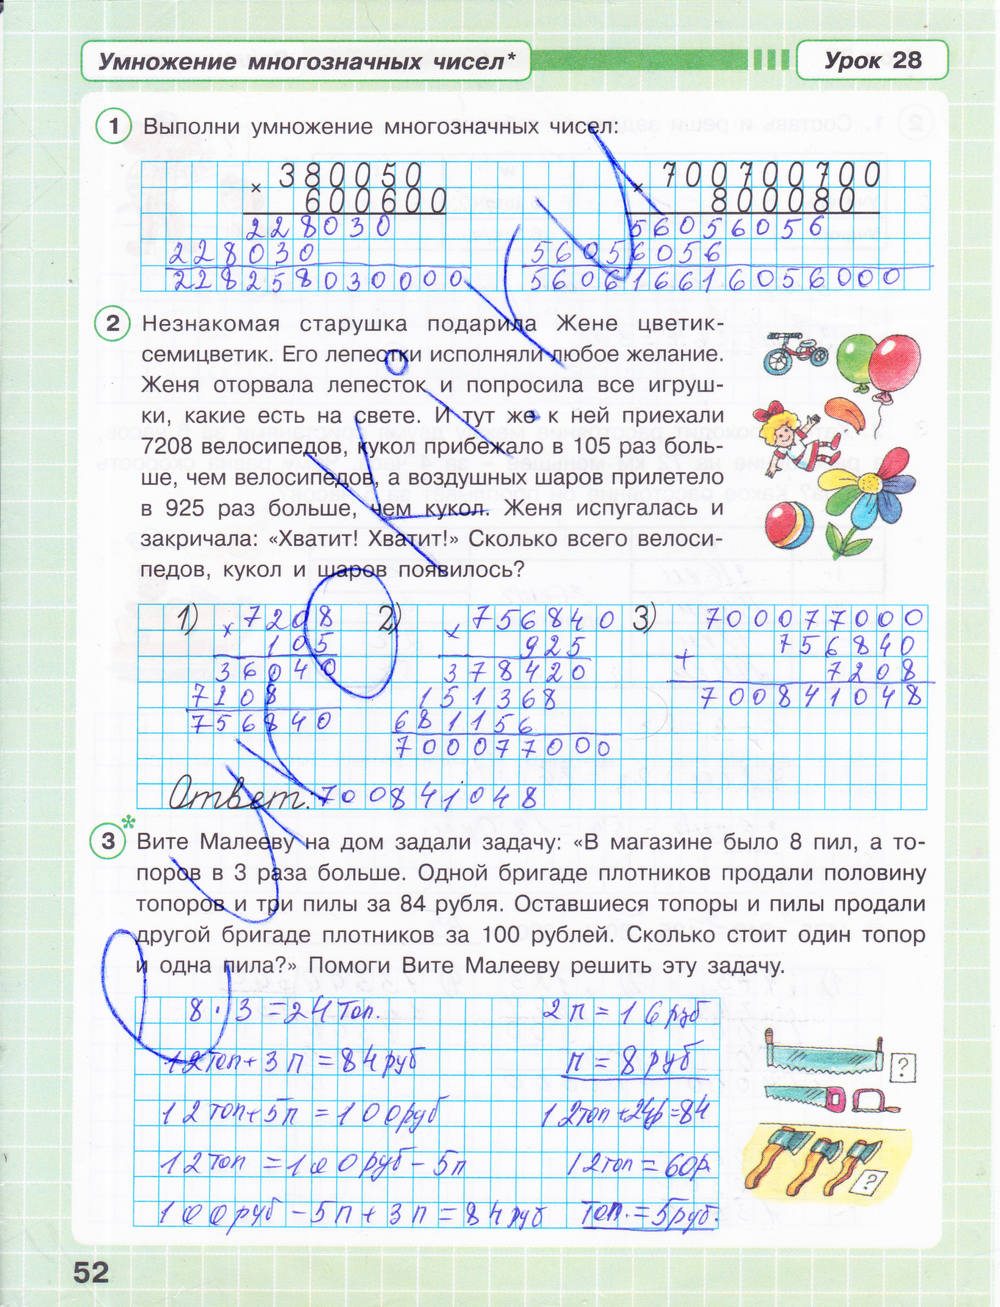 Умножение многозначных чисел*
Урок 28
1 Выполни умножение многозначных чисел:
× 380050
600600
228030
228030
228258030000
× 700700700
800080
56056056
56056056
560616616056000
2 Незнакомая старушка подарила Жене цветик-
семицветик. Его лепестки исполняли любое желание.
Женя оторвала лепесток и попросила все игруш-
ки, какие есть на свете. И тут же к ней приехали
7208 велосипедов, кукол прибежало в 105 раз боль-
ше, чем велосипедов, а воздушных шаров прилетело
в 925 раз больше, чем кукол. Женя испугалась и
закричала: «Хватит! Хватит!» Сколько всего велоси-
педов, кукол и шаров появилось?
1) × 7208
105
36040
7208
756840
2) × 756840
925
378420
151368
681156
700077000
3) 700077000
+ 756840
7208
700841048
Ответ: 700841048
3* Вите Малееву на дом задали задачу: «В магазине было 8 пил, а то-
поров в 3 раза больше. Одной бригаде плотников продали половину
топоров и три пилы за 84 рубля. Оставшиеся топоры и пилы продали
другой бригаде плотников за 100 рублей. Сколько стоит один топор
и одна пила?» Помоги Вите Малееву решить эту задачу.
8 · 3 = 24 топ.
12 топ + 3 п = 84 руб
12 топ + 5 п = 100 руб
12 топ = 100 руб - 5 п
100 руб - 5 п + 3 п = 84 руб
2 п = 16 руб
п = 8 руб
12 топ + 24р = 84
12 топ = 60 р.
топ. = 5 руб.
?
?
52